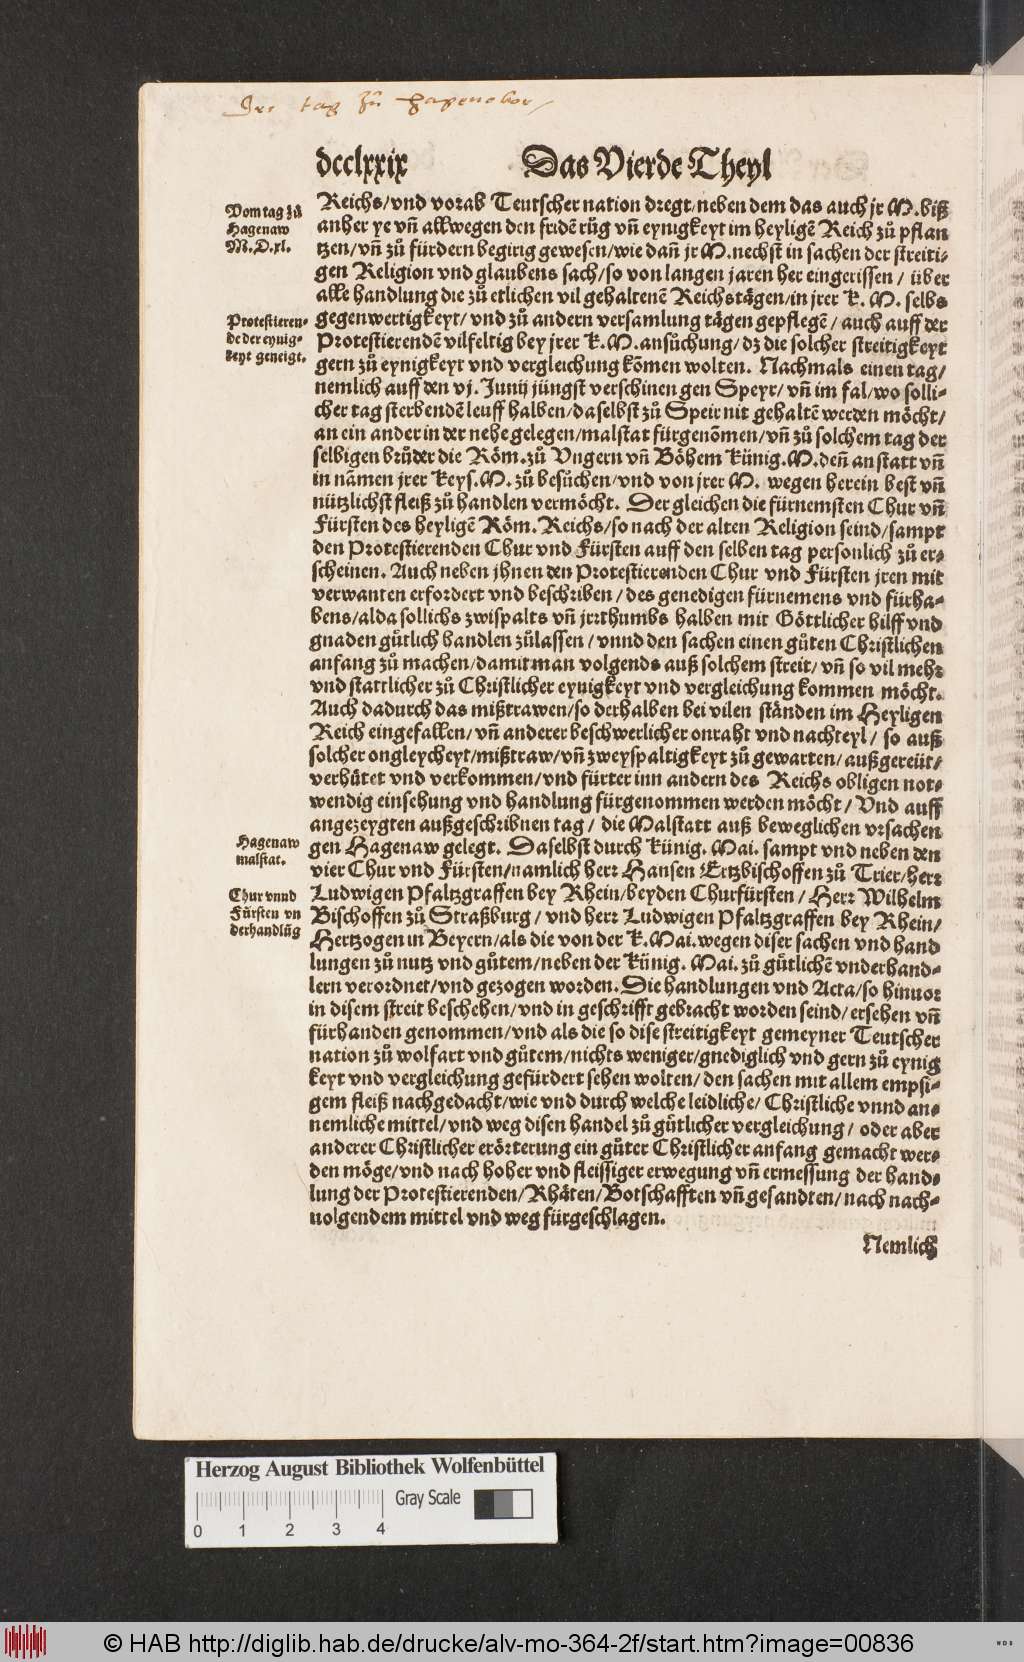 Der tag zů Hagenaw
dcclxxix Das Vierde Theyl
Vom tag zů
Hagenaw
M.D.xl.
Reichs/vnd vorab Teutscher nation dregt/neben dem das auch jr M.biß
anher ye vñ allwegen den fridẽ růg vñ eynigkeyt im heyligẽ Reich zů pflan
tzen/vñ zů fürdern begirig gewesen/wie dañ jr M.nechst in sachen der streiti-
gen Religion vnd glaubens sach/so von langen jaren her eingerissen/ über
alle handlung die zů etlichen vil gehaltenẽ Reichstägen/in jrer K. M. selbs
Protestieren-
de der eynig-
keyt geneigt.
gegenwertigkeyt/vnd zů andern versamlung tägen gepflegẽ/auch auff der
Protestierendẽ vilfeltig bey jrer K.M.ansůchung/dz die solcher streitigkeyt
gern zů eynigkeyt vnd vergleichung kõmen wolten. Nachmals einen tag/
nemlich auff den vj. Junij jüngst verschinen gen Speyr/vñ im fal/wo solli-
cher tag sterbendẽ leuff halben/daselbst zů Speir nit gehaltẽ werden möcht/
an ein ander in der nehe gelegen/malstat fürgenõmen/vñ zů solchem tag der
selbigen brůder die Röm.zů Vngern vñ Böhem Künig.M.deñ anstatt vñ
in nãmen jrer Keys.M. zů besůchen/vnd von jrer M. wegen herein best vñ
nützlichst fleiß zů handlen vermöcht. Der gleichen die fürnemsten Chur vñ
Fürsten des heyligẽ Röm. Reichs/so nach der alten Religion seind/sampt
den Protestierenden Chur vnd Fürsten auff den selben tag personlich zů er-
scheinen. Auch neben jhnen den Protestierenden Chur vnd Fürsten jren mit
verwanten erfordert vnd beschriben/des genedigen fürnemens vnd fürha-
bens/alda sollichs zwispalts vñ jrrthumbs halben mit Göttlicher hilff vnd
gnaden gůtlich handlen zůlassen/vnnd den sachen einen gůten Christlichen
anfang zů machen/damit man volgends auß solchem streit/vñ so vil mehr
vnd stattlicher zů Christlicher eynigkeyt vnd vergleichung kommen möcht.
Auch dadurch das mißtrawen/so derhalben bei vilen ständen im Heyligen
Reich eingefallen/vñ anderer beschwerlicher onraht vnd nachteyl/ so auß
solcher ongleycheyt/mißtraw/vñ zweyspaltigkeyt zů gewarten/außgereüt/
verhütet vnd verkommen/vnd fürter inn andern des Reichs obligen not-
wendig einsehung vnd handlung fürgenommen werden möcht/Vnd auff
angezeygten außgeschribnen tag/ die Malstatt auß beweglichen vrsachen
Hagenaw
malstat.
gen Hagenaw gelegt. Daselbst durch Künig. Mai. sampt vnd neben den
vier Chur vnd Fürsten/namlich herr Hansen Ertzbischoffen zů Trier/herr
Chur vnnd
Fürsten vn
derhandlũg
Ludwigen Pfaltzgraffen bey Rhein/beyden Churfürsten/Herr Wilhelm
Bischoffen zů Straßburg/vnd herr Ludwigen Pfaltzgraffen bey Rhein/
Hertzogen in Beyern/als die von der K.Mai.wegen diser sachen vnd hand
lungen zů nutz vnd gůtem/neben der Künig. Mai. zů gůtlichẽ vnderhand-
lern verordnet/vnd gezogen worden. Die handlungen vnd Acta/so hinuor
in disem streit beschehen/vnd in geschrifft gebracht worden seind/ersehen vñ
fürhanden genommen/vnd als die so dise streitigkeyt gemeyner Teutscher
nation zů wolfart vnd gůtem/nichts weniger/gnediglich vnd gern zů eynig
keyt vnd vergleichung gefürdert sehen wolten/den sachen mit allem empsi-
gem fleiß nachgedacht/wie vnd durch welche leidliche/Christliche vnnd an-
nemliche mittel/vnd weg disen handel zů gůtlicher vergleichung/ oder aber
anderer Christlicher erörterung ein gůter Christlicher anfang gemacht wer-
den möge/vnd nach hoher vnd fleissiger erwegung vñ ermessung der hand-
lung der Protestierenden/Rhäten/Botschafften vñ gesandten/nach nach-
uolgendem mittel vnd weg fürgeschlagen.
Nemlich
Herzog August Bibliothek Wolfenbüttel
Gray Scale
0 1 2 3 4
© HAB http://diglib.hab.de/drucke/alv-mo-364-2f/start.htm?image=00836